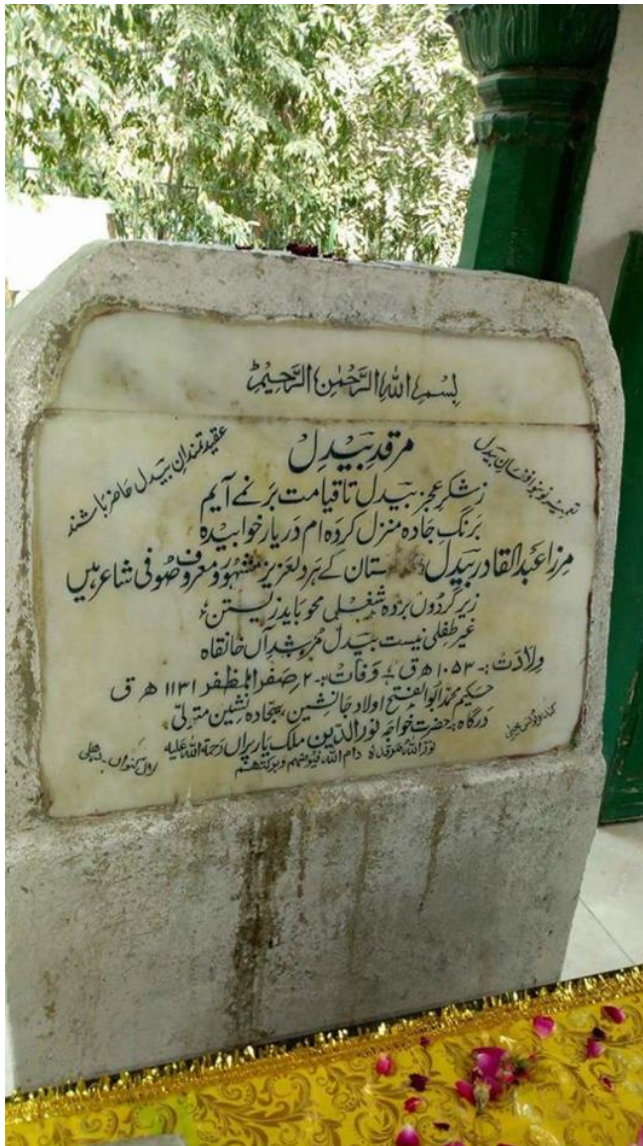 بِسْمِ اللهِ الرَّحْمٰنِ الرَّحِيْمِ
مرقدِ بیدل
تعمیر نو افغان بیدل
عقیدتمندانِ بیدل حاضر باشند
زشکرِ عجز بیدل تا قیامت بر نمے آیم
برنگِ جادہ منزل کردہ ام در پار خوابیدہ
مرزا عبدالقادر بیدل ستان کے ہردلعزیز مشہور و معروف صوفی شاعر ہیں
زیرِ گردوں بردہ شغلی محو باید زیستن
غیر طفلی نیست بیدل مُرشدِ آں خانقاہ
ولادت :۔ ۱۰۵۳ ھ ق وفات :۔ ۲ صفر المظفر ۱۱۳۱ ھ ق
حکیم محمد ابوالفتح اولاد جانشین، سجادہ نشین متولّی
درگاہ :۔ حضرت خواجہ نور الدین ملک یار پراں رحمۃ اللہ علیہ
نور اللہ مرقدہ دام اللہ فیوضہم وبرکتہم